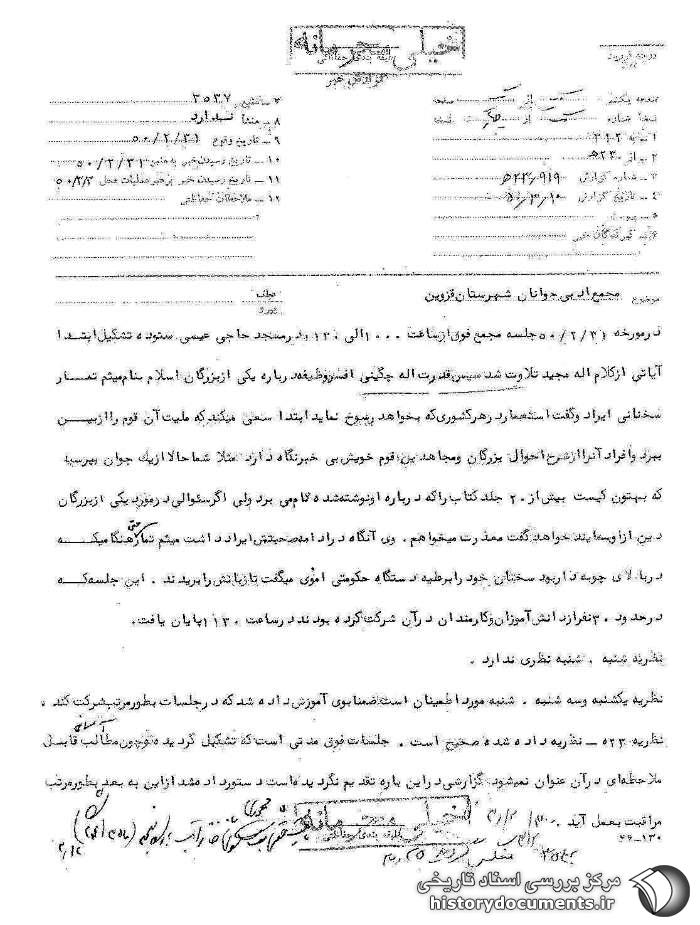 خیلی محرمانه
طبقه بندی حفاظتی
گزارش خبر
درجه فوریت
۱ـ به ۳۱۲
۲ـ از ۲۳ هـ
۳ـ شماره گزارش ۲۳/۹۱۹ هـ
۴ـ تاریخ گزارش
۵ـ پیوست
۶ـ گیرندگان خبر
۷ـ منبع ۳۵۳۷
۸ـ منشأ ندارد
۹ـ تاریخ وقوع ۵۰/۲/۳۱
۱۰ـ تاریخ رسیدن خبر به منبع ۵۰/۲/۳۱
۱۱ـ تاریخ رسیدن خبر به رهبر عملیات محل ۵۰/۳/۲
۱۲ـ ملاحظات حفاظتی
موضوع مجمع ادبی جوانان شهرستان قزوین
عطف
پیرو
در مورخه ۵۰/۲/۳۱ جلسه مجمع فوق از ساعت ۱۰۰۰ الی ۱۱۳۰ در مسجد حاجی عیسی ستوده تشکیل ابتدا
آیاتی از کلام اله مجید تلاوت شد سپس قدرت اله چگینی افسر وظیفه درباره یکی از بزرگان اسلام بنام میثم تمار
سخنانی ایراد و گفت استعمار در هر کشوری که بخواهد رسوخ نماید ابتدا سعی میکند که ملیت آن قوم را از بین
ببرد و افراد آنرا از شرح احوال بزرگان و مجاهدین قوم خویش بی خبر نگاه دارد مثلا شما حالا از یک جوان بپرسید
که بهتون کیست بیش از ۲۰ جلد کتاب را که درباره او نوشته شده نام می برد ولی اگر سئوالی در مورد یکی از بزرگان
دین از او بنمایند خواهد گفت معذرت میخواهم . وی آنگاه در ادامه صحبتش ایراد داشت میثم تمار حتی هنگامیکه
در بالای چوبه دار بود سخنان خود را بر علیه دستگاه حکومتی اموی میگفت تا زبانش را بریدند . این جلسه که
در حدود ۳۰ نفر از دانش آموزان و کارمندان در آن شرکت کرده بودند در ساعت ۱۱۳۰ پایان یافت.
نظریه شنبه . شنبه نظری ندارد .
نظریه یکشنبه و سه شنبه . شنبه مورد اطمینان است ضمنا بوی آموزش داده شد که در جلسات بطور مرتب شرکت کند .
نظریه ۵۲۳ ـ نظریه داده شده صحیح است . جلسات فوق مدتی است که تشکیل گردیده و چون مطالب قابل
ملاحظه‌ای در آن عنوان نمیشود گزارشی در این باره تقدیم نگردیده است دستور داده شد از این به بعد بطور مرتب
مراقبت بعمل آید .
۲۶-۱۳۰
خیلی محرمانه
طبقه بندی حفاظتی
مرکز بررسی اسناد تاریخی
historydocuments.ir